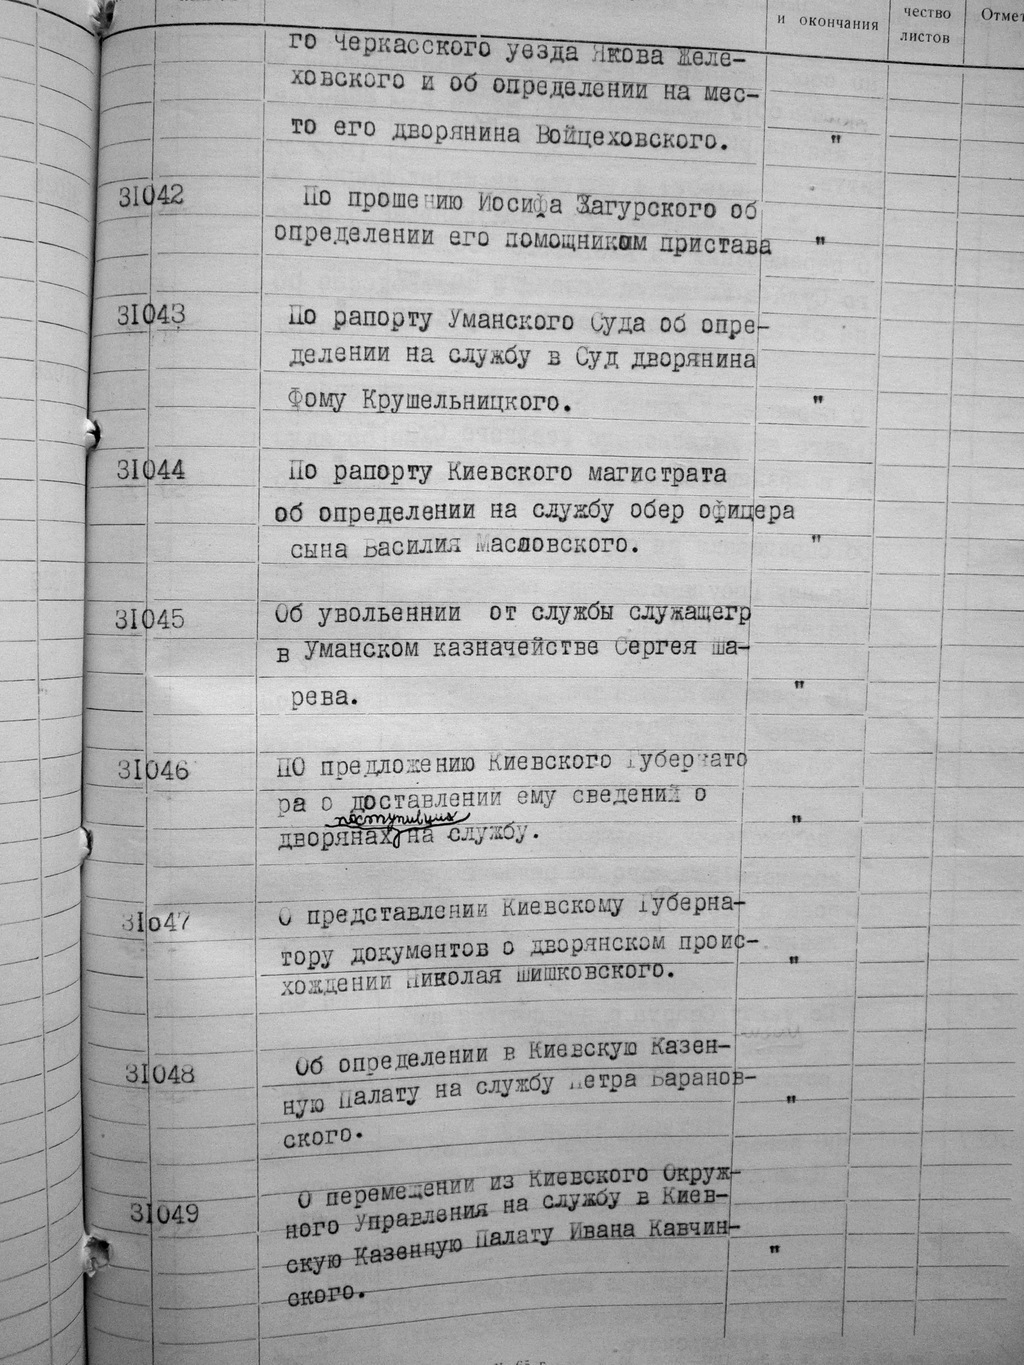 и окончания
чество
листов
Отмет
го Черкасского уезда Якова Желе-
ховского и об определении на мес-
то его дворянина Войцеховского. "
31042 По прошению Иосифа Загурского об
определении его помощником пристава "
31043 По рапорту Уманского Суда об опре-
делении на службу в Суд дворянина
Фому Крушельницкого. "
31044 По рапорту Киевского магистрата
об определении на службу обер офицера
сына Василия Масловского. "
31045 Об увольеннии от службы служащегр
в Уманском казначействе Сергея Ша-
рева. "
31046 ПО предложению Киевского Губернато
ра о доставлении ему сведений о
поступивших
дворянах на службу. "
31о47 О представлении Киевскому Губерна-
тору документов о дворянском проис-
хождении Николая Шишковского. "
31048 Об определении в Киевскую Казен-
ную Палату на службу Петра Баранов-
ского. "
31049 О перемещении из Киевского Окруж-
ного Управления на службу в Киев-
скую Казенную Палату Ивана Кавчин-
ского. "